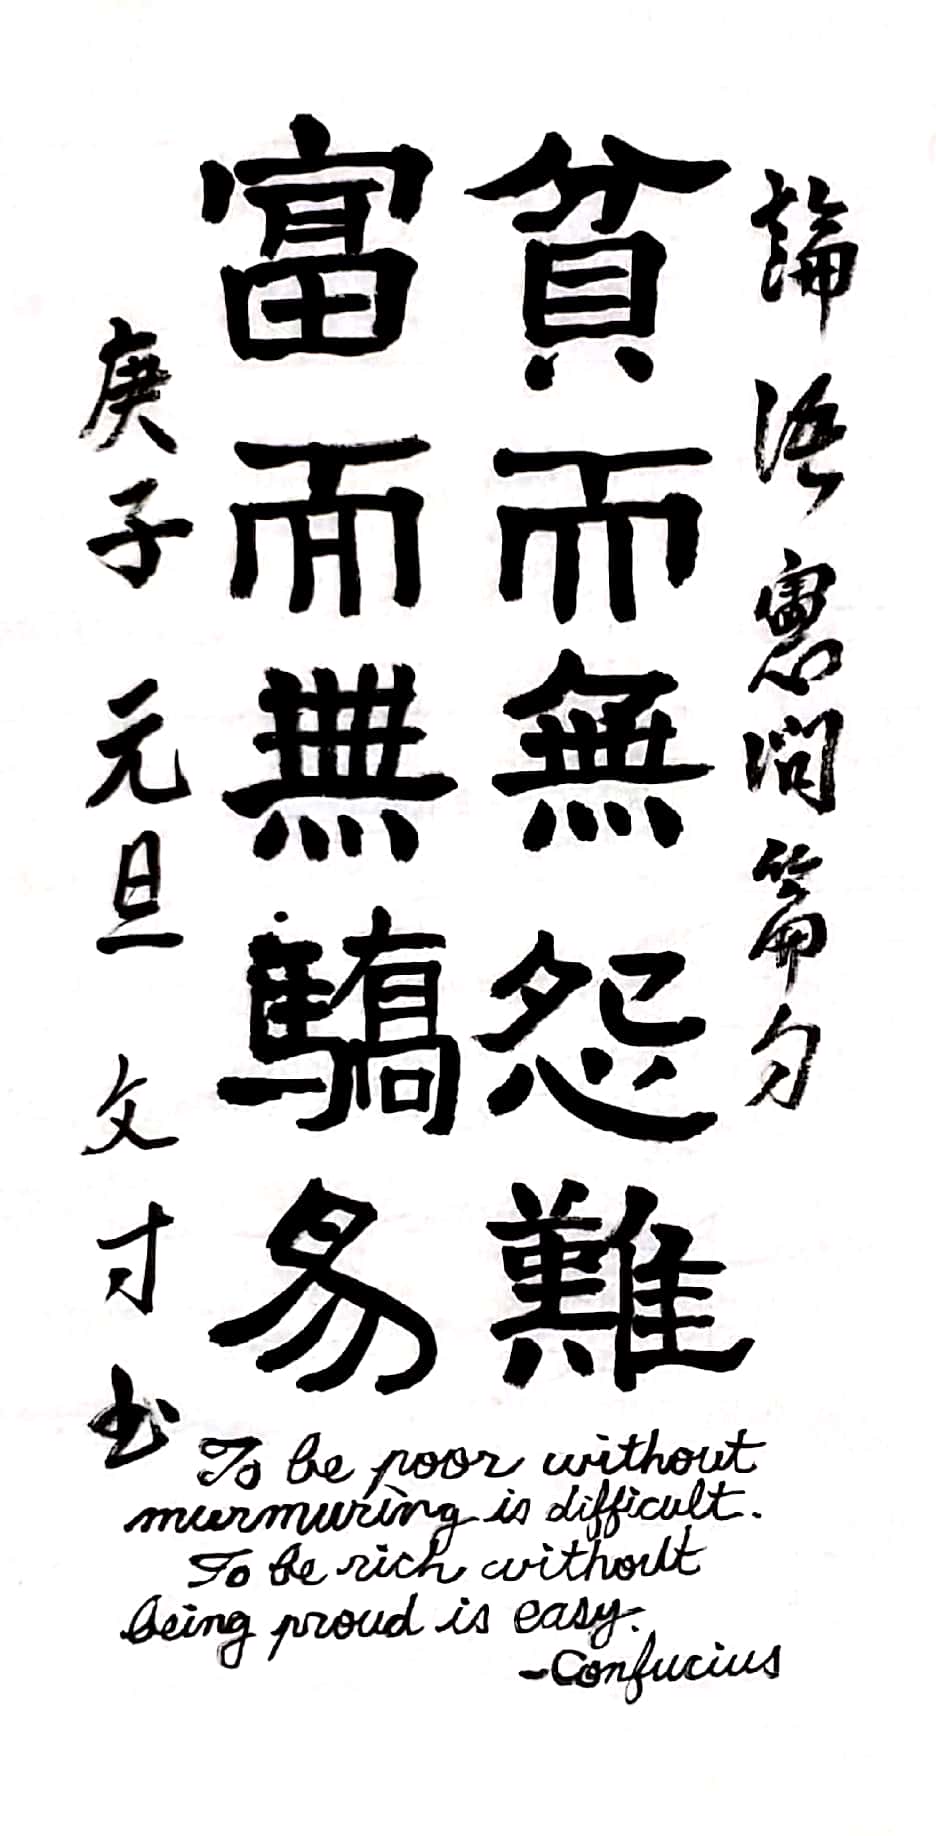 論語憲問篇句
貧而無怨難
富而無驕易
庚子元旦 文才书
To be poor without
murmuring is difficult.
To be rich without
being proud is easy.
-Confucius